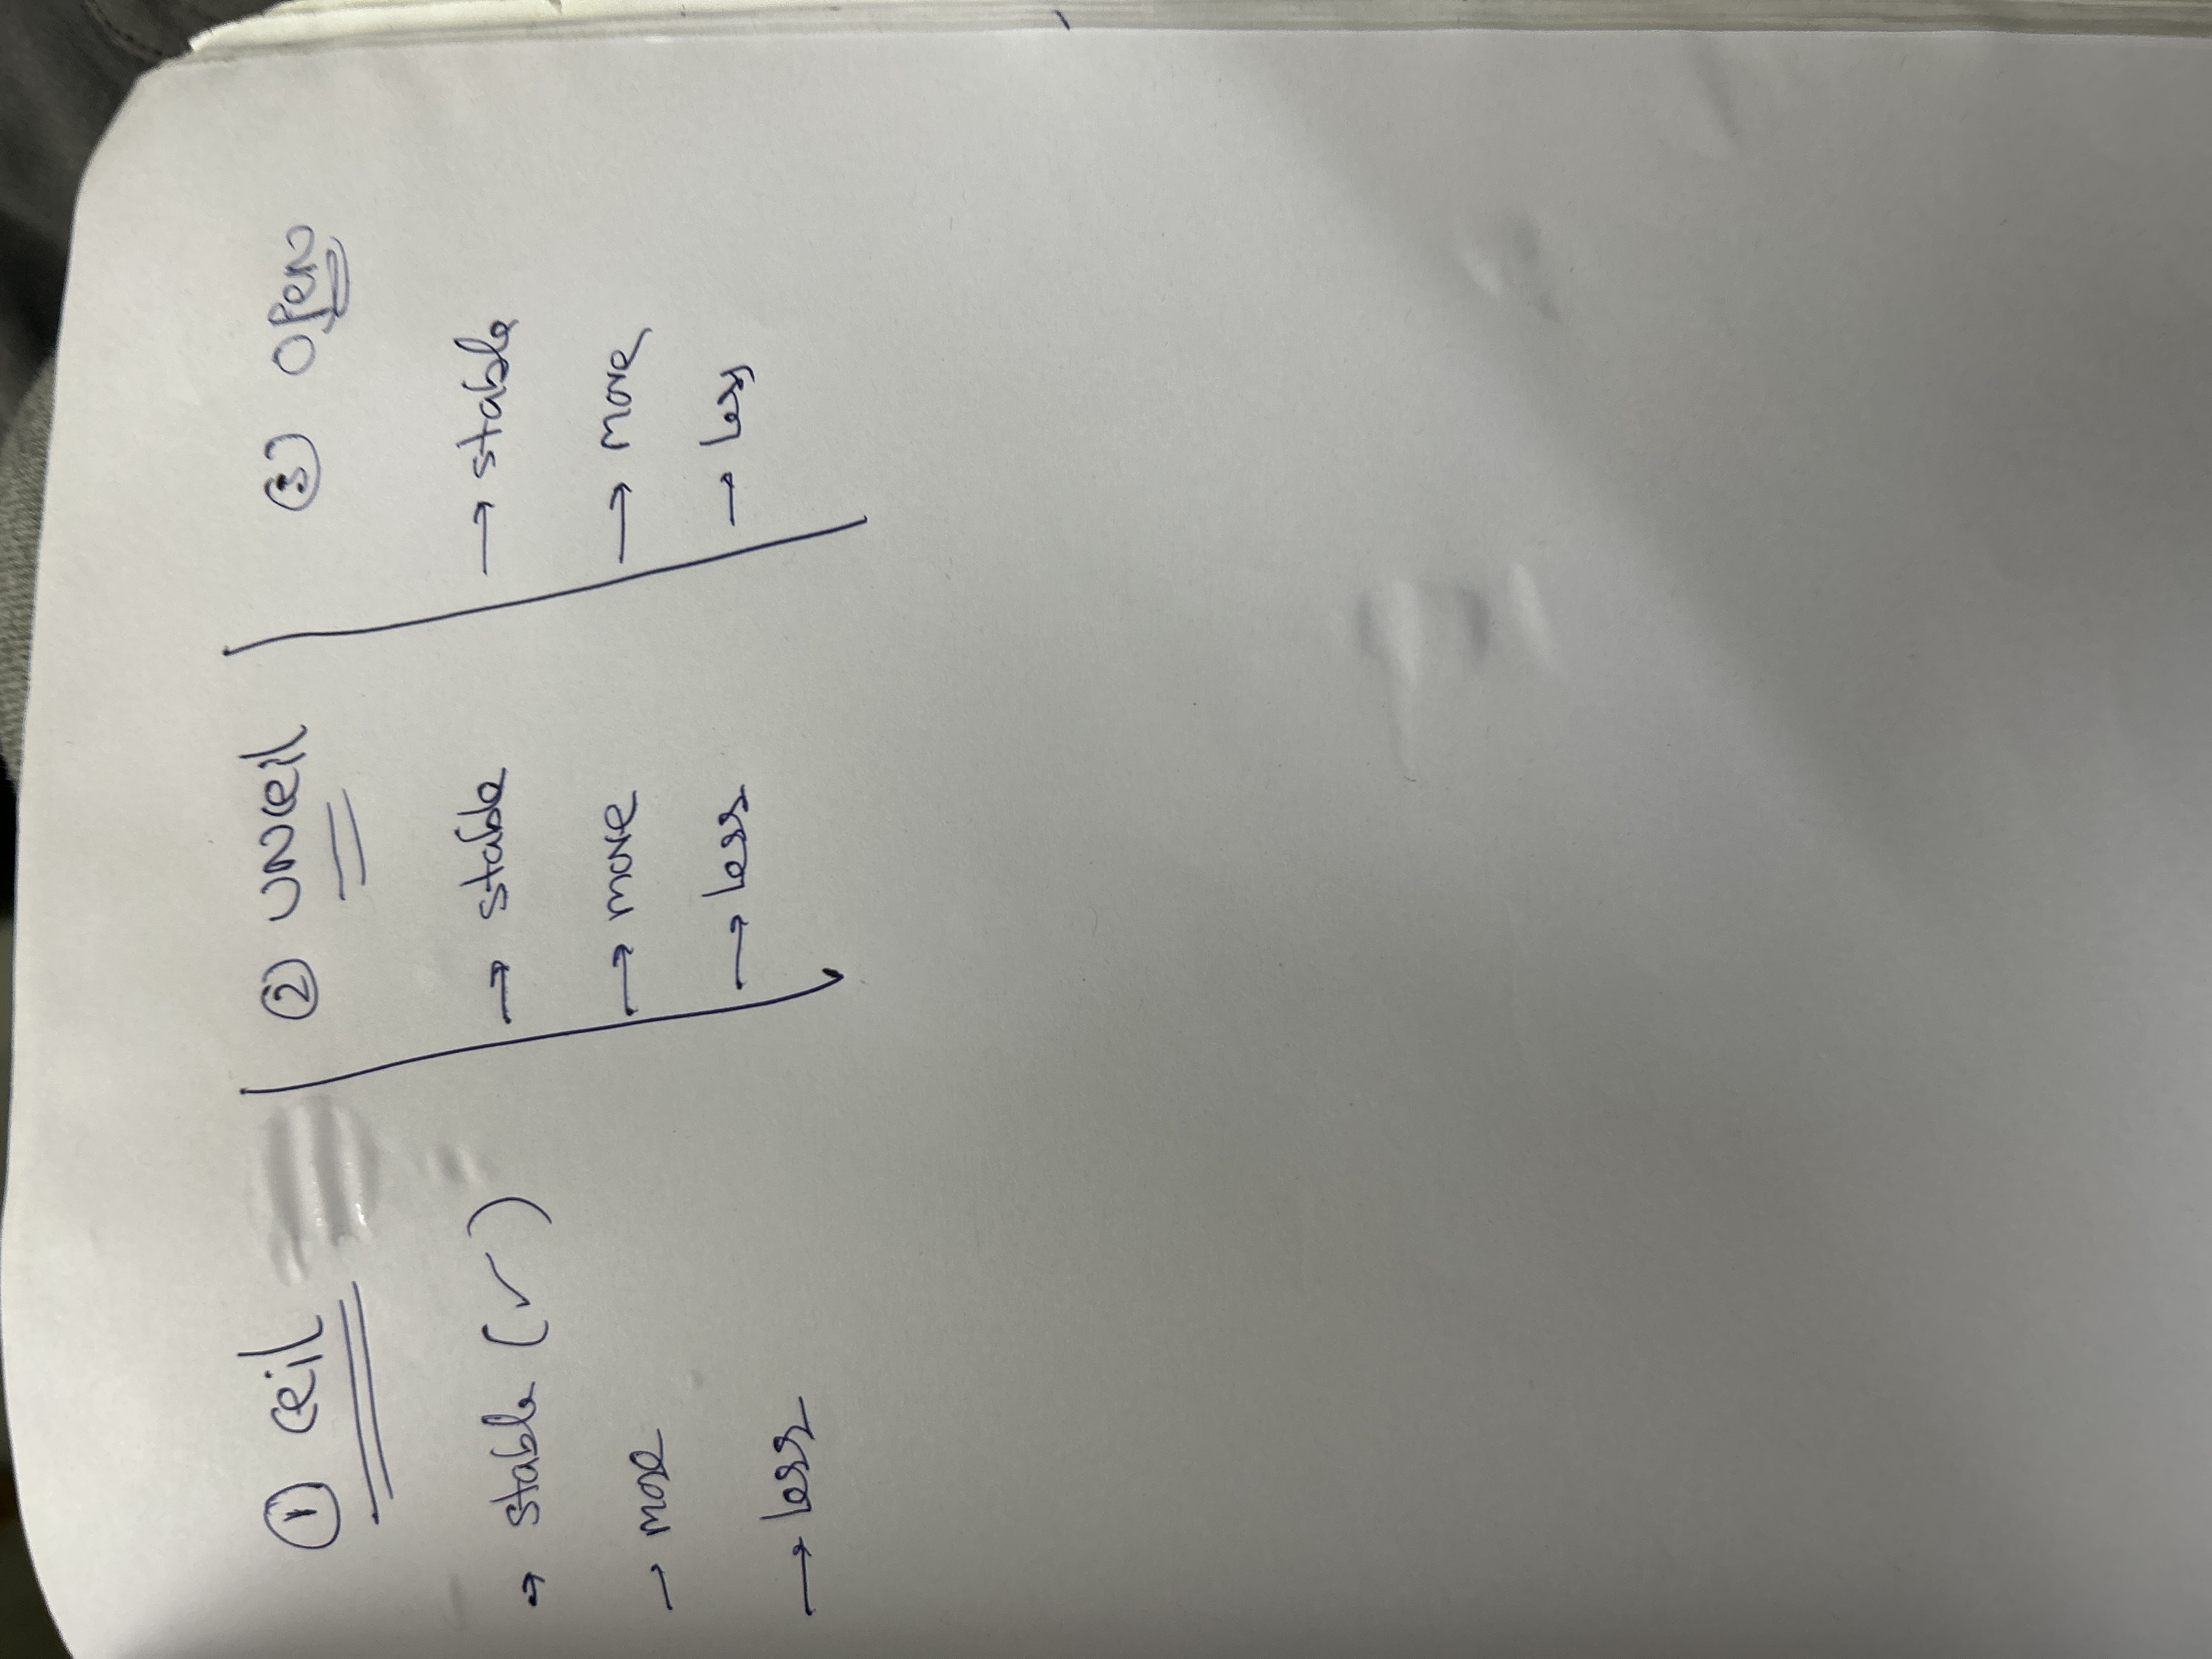 ① ceil
→ stable (✓)
→ more
→ less
② UNceil
→ stable
→ more
→ less
③ Open
→ stable
→ more
→ less